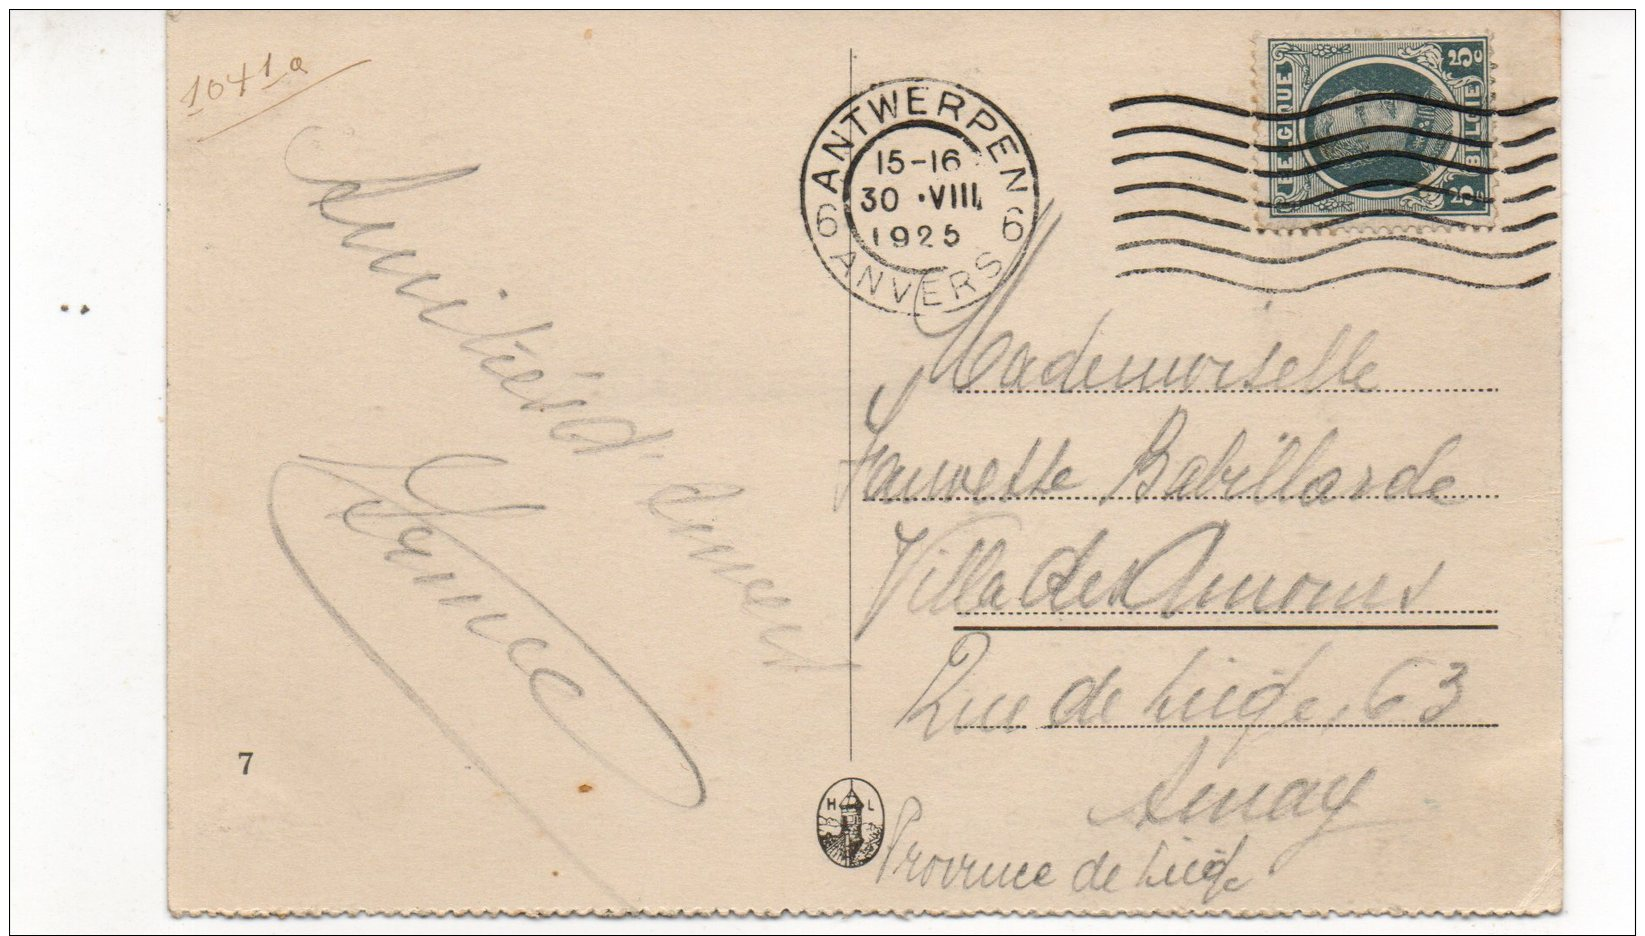 1041a
Amitiés d'Anvers
7
ANTWERPEN
15-16
30 .VIII
1925
6 6
ANVERS
BELGIQUE
BELGIE
5c
5c
H L
Mademoiselle
Fauvette Babillarde
Villa des Amours
Rue de Liége, 63
Amay
Province de Liége